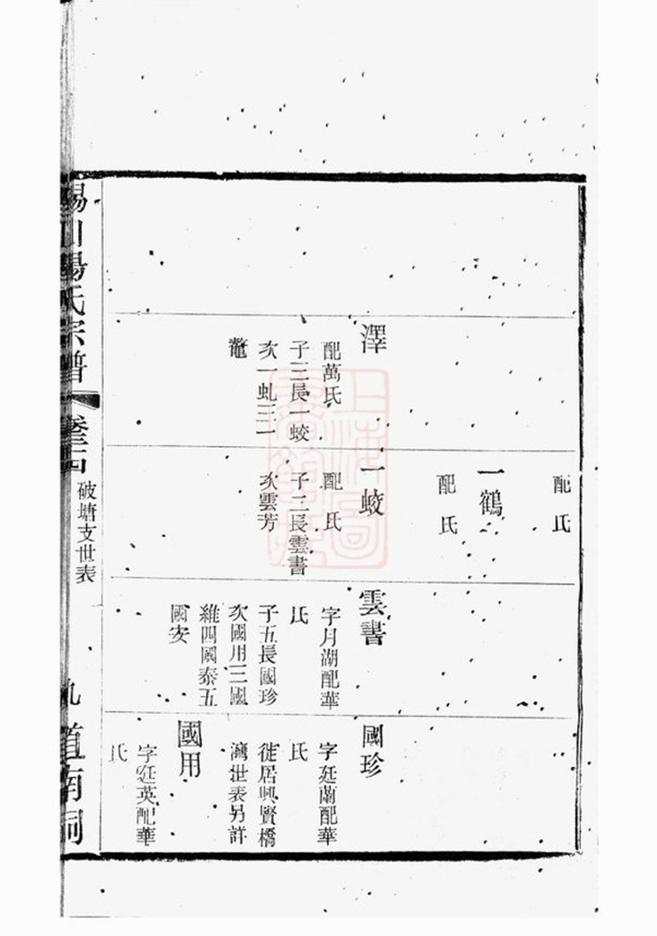 配氏
一鶴
配氏
澤
配萬氏
子三長一蛟
次一虬三一
鼇
一蛟
配氏
子二長雲書
次雲芳
雲書
字月湖配華
氏
子五長國珍
次國用三國
維四國泰五
國安
國珍
字廷蘭配華
氏
徙居興賢橋
灣世表另詳
國用
字廷英配華
氏
山楊氏宗譜
破塘支世表
道南祠